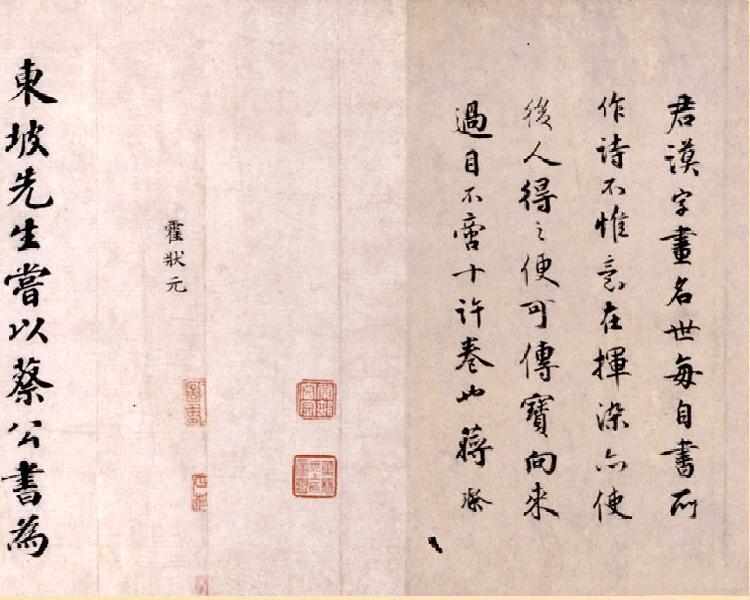 君謨字畫名世每自書所
作詩不惟意在揮染亦使
後人得之便可傳寶向來
過目不啻十許卷也蔣璨
霍狀元
東坡先生嘗以蔡公書為